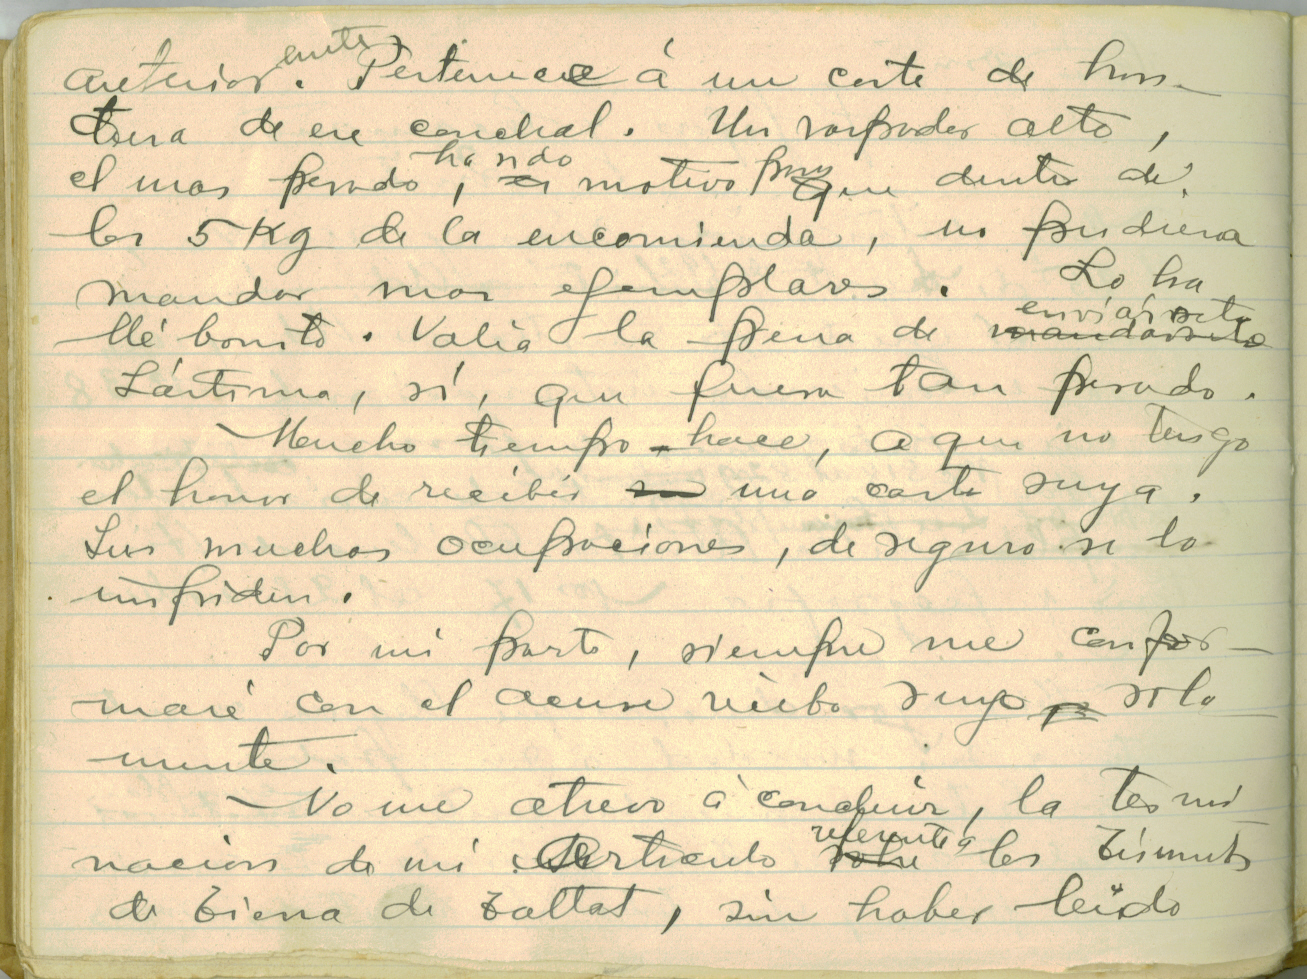 anteriormente. Pertenece á un corte de hon-
dura de ese conchal. Un raspador alto,
el mas pesado, ha sido motivo para que dentro de
los 5 Kg de la encomienda, no pudiera
mandar mas ejemplares. Lo ha
llé bonito. Valia la pena de enviárselo mandarselo
Lástima, sí, que fuera tan pesado.
Mucho tiempo hace, a que no tengo
el honor de recibir una carta suya.
Sus muchas ocupaciones, de seguro se lo
impiden.
Por mi parte, siempre me confor-
maré con el acuse recibo suyo sola
mente.
No me atrevo á concluir, la termi
nacion de mi Articulo referente á sobre los Túmulos
de de Taltal, sin haber leído